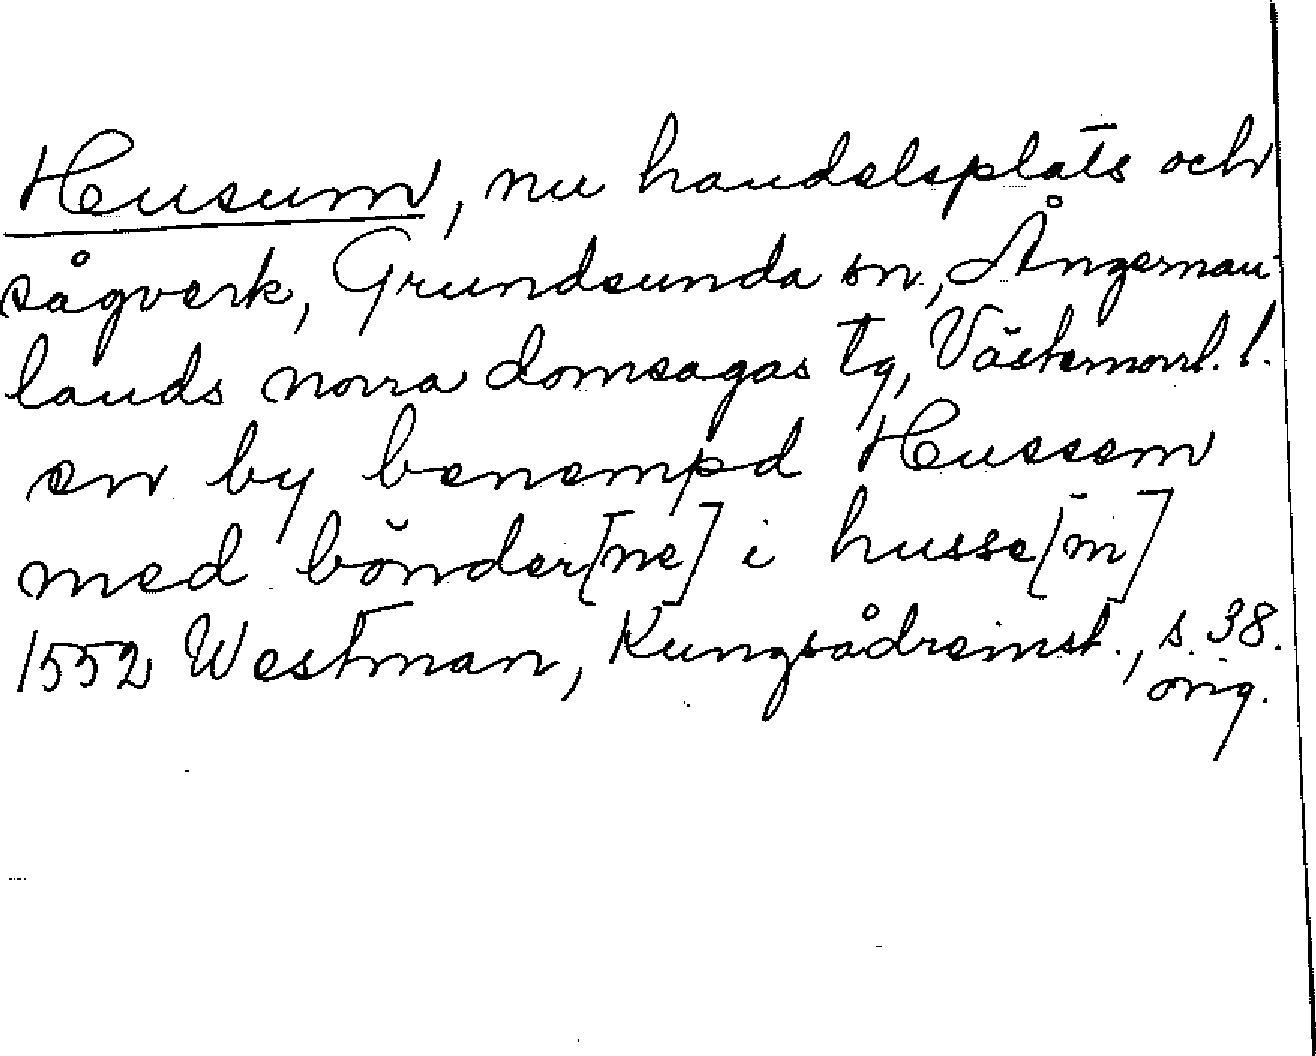 Husum, nu handelsplats och
sågverk, Grundsunda sn, Ångerman-
lands norra domsagas tg, Västernorrl. l.
en by benempd Hussem
med bönder[ne] i husse[m]
1552 Westman, Kungsådreinst., s. 38.
orig.